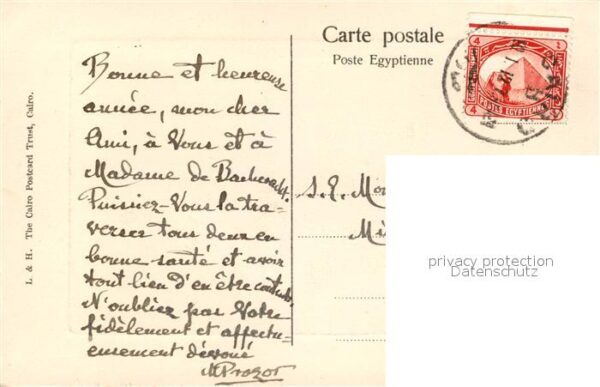 Carte postale
Poste Egyptienne
4
4
POSTES EGYPTIENNES
CAIRO
Bonne et heureuse
année, mon cher
Ami, à Vous et à
Madame de
Puissiez-Vous la tra-
verser tous deux en
bonne santé et avoir
tout lieu d'en être contents.
N'oubliez pas Votre
fidèlement et affectu-
eusement dévoué
MProzor
S. E. Mon
L. & H. The Cairo Postcard Trust, Cairo.
privacy protection
Datenschutz